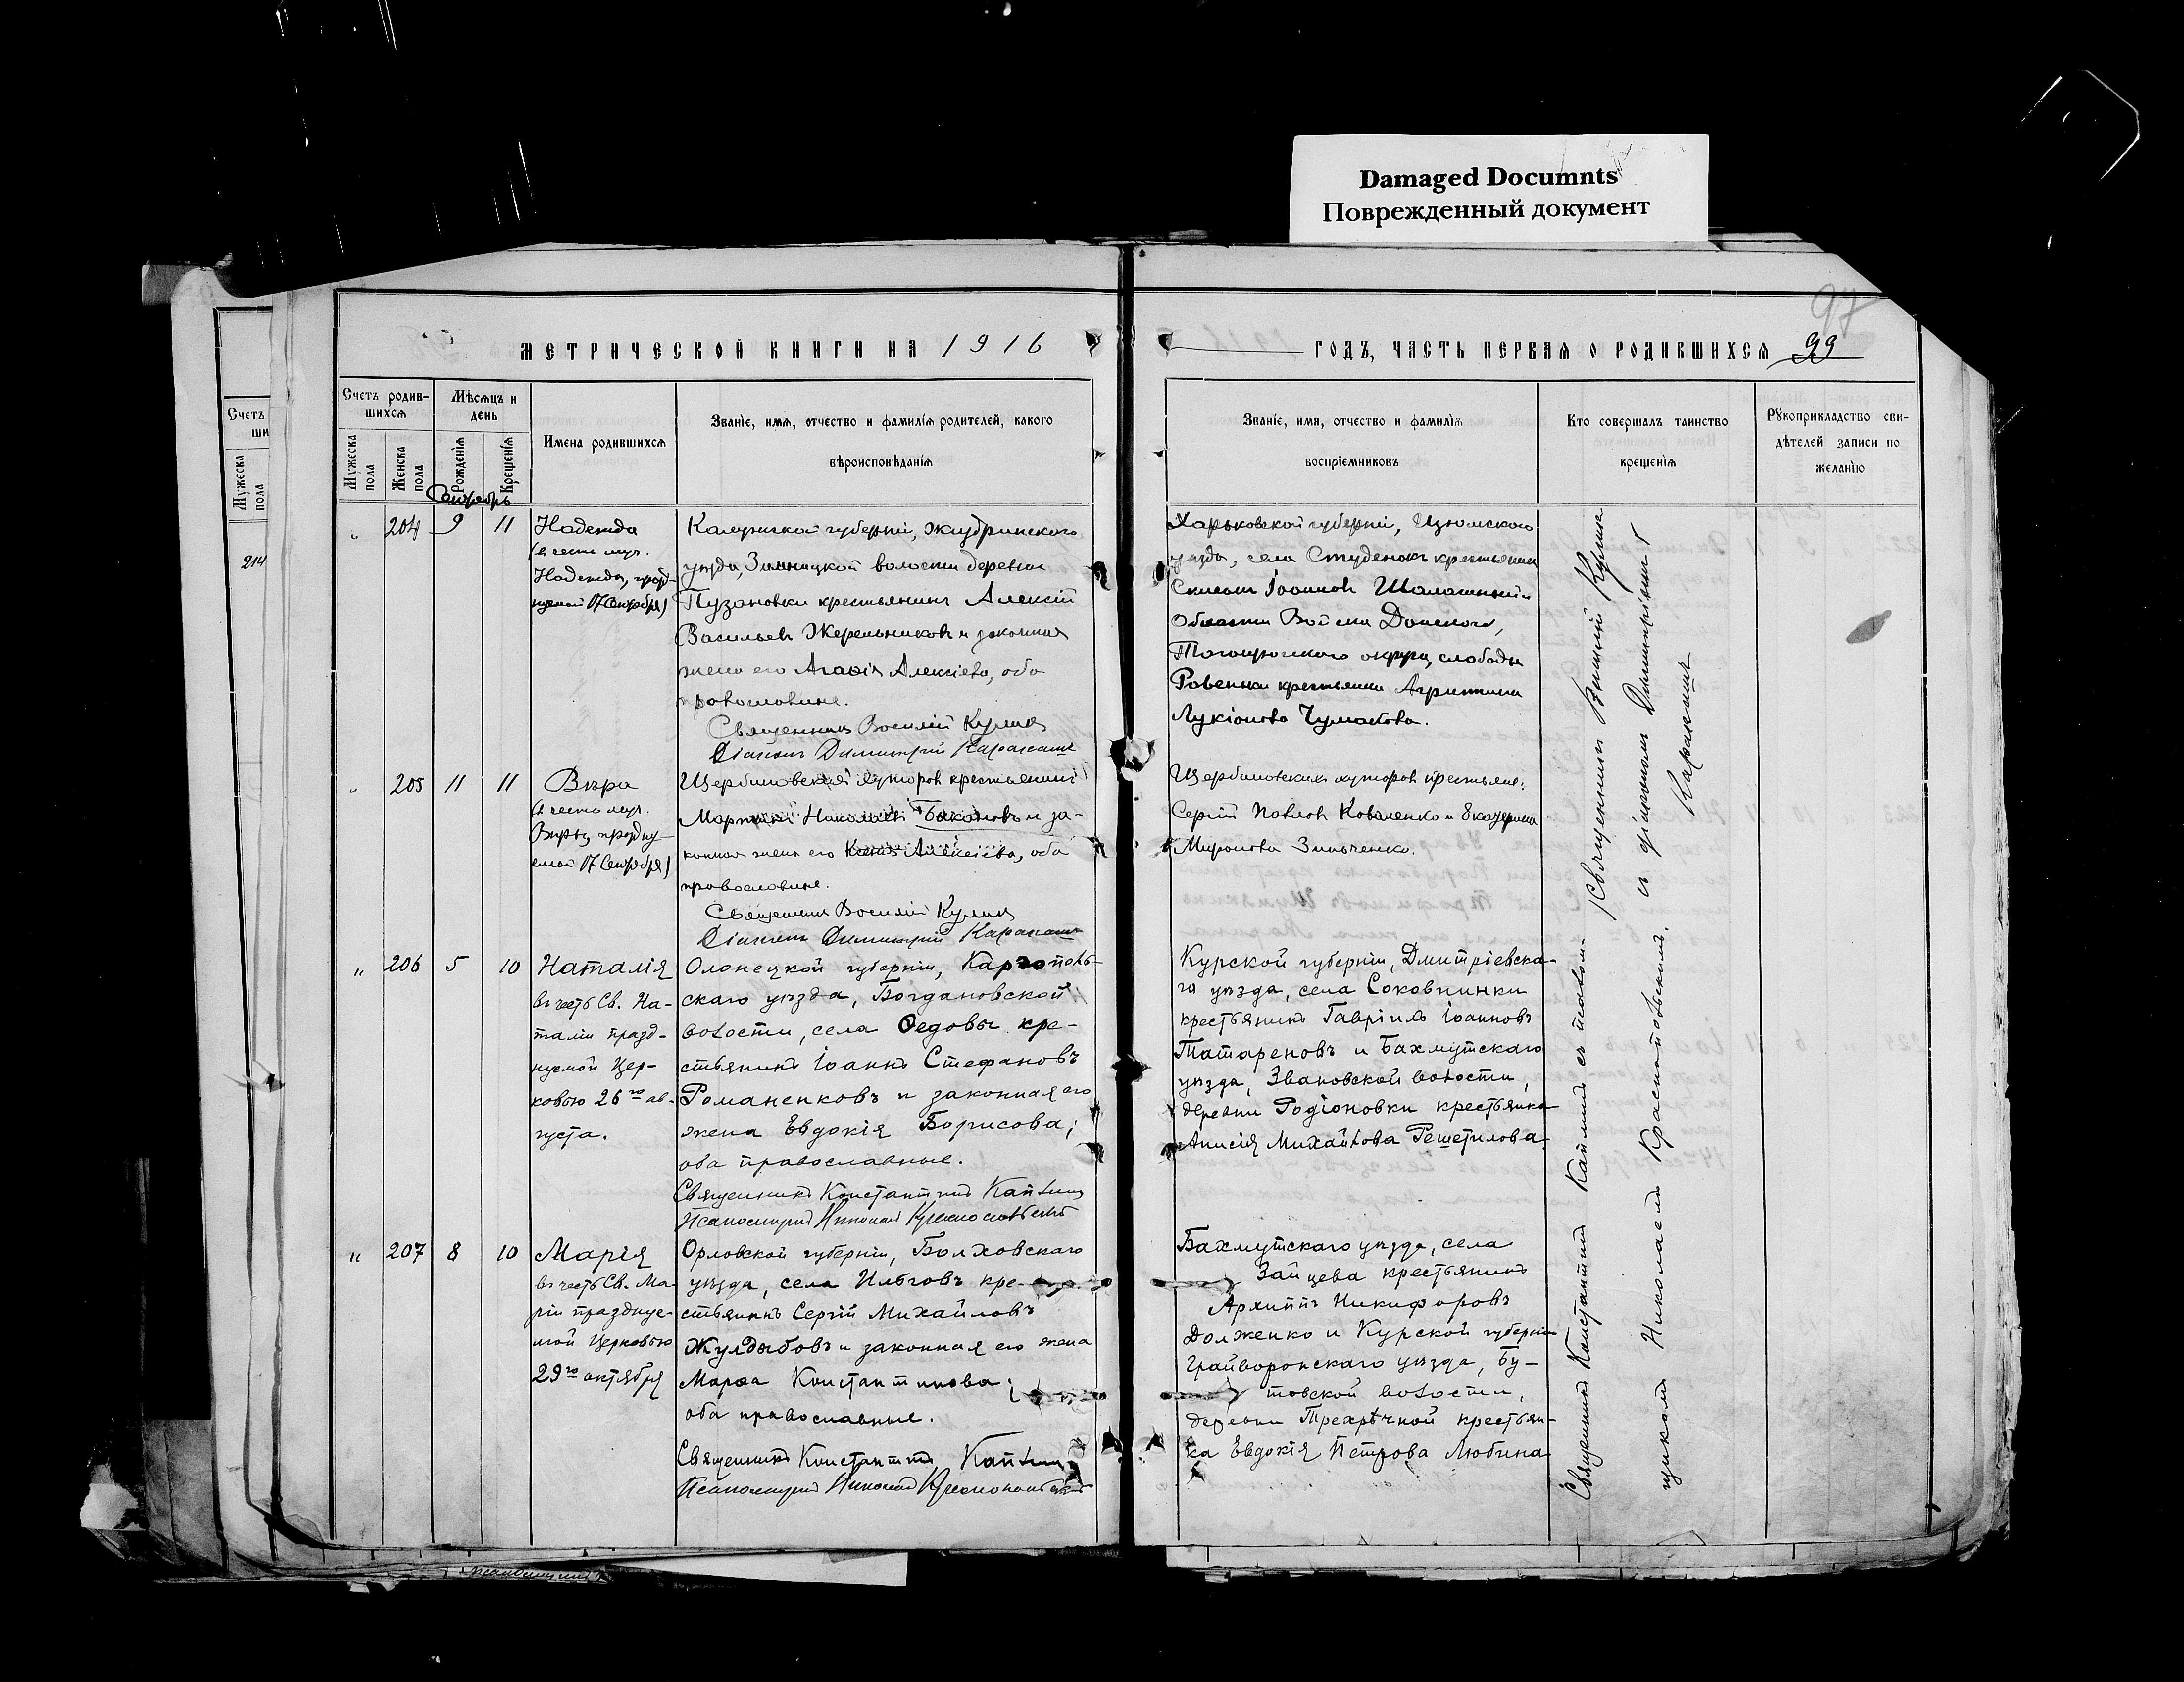 Damaged Documnts
Поврежденный документ
МЕТРИЧЕСКОЙ КНИГИ НА 1916
ГОДЪ, ЧАСТЬ ПЕРВАЯ О РОДИВШИХСЯ 99
97
Счетъ
ши
Мужеска пола
214
Счетъ родив-
шихся
Мужеска пола
Женска пола
Мѣсяцъ и
день
Рожденія
Крещенія
Имена родившихся
Званіе, имя, отчество и фамилія родителей, какого
вѣроисповѣданія
Званіе, имя, отчество и фамилія
воспріемниковъ
Кто совершалъ таинство
крещенія
Рукоприкладство сви-
дѣтелей записи по
желанію
Сентябрь
" 204 9 11
Надежда
(въ честь муч.
Надежды, празд-
нуемой 17 Сентября)
Калужской губерніи, Жиздринскаго
уѣзда, Зимницкой волости деревни
Пузановки крестьянинъ Алексій
Васильевъ Жерельниковъ и законная
жена его Агаѳія Алексіева, оба
православные.
Священникъ Василій Кулик
Діаконъ Димитрій Каракаш
Харьковской губерніи, Изюмскаго
уѣзда, села Студенокъ крестьянинъ
Іоанновъ
Области Войска Донского,
Таганрогскаго округа, слободы
Ровеньки крестьянка
Лукіанова Чумакова.
" 205 11 11
Вѣра
(въ честь муч.
Вѣры, праздну-
емой 17 Сентября)
Щербиновскихъ хуторовъ крестьянинъ
Николаевъ Бакановъ и за-
конная жена его Ксенія Алексіева, оба
православные.
Священникъ Василій Кулик
Діаконъ Димитрій Каракаш
Щербиновскихъ хуторовъ крестьяне:
Сергій Павловъ Коваленко и Екатерина
Миронова Зинченко.
" 206 5 10
Наталія
въ честь Св. На-
таліи празд-
нуемой Цер-
ковью 26го ав-
густа.
Олонецкой губерніи, Каргополь-
скаго уѣзда, Богдановской
волости, села Ѳедовы кре-
стьянинъ Іоаннъ Стефановъ
Романенковъ и законная его
жена Евдокія Борисова;
оба православные.
Священникъ Константинъ
Псаломщикъ Николай Краснопольскій
Курской губерніи, Дмитріевска-
го уѣзда, села Соковнинки
крестьянинъ Гавріилъ Іоанновъ
Татареновъ и Бахмутскаго
уѣзда, Звановской волости,
деревни Родіоновки крестьянка
Анисія Михайлова Решетилова.
" 207 8 10
Марія
въ честь Св. Ма-
ріи празднуе-
мой Церковью
29го октября
Орловской губерніи, Болховскаго
уѣзда, села Ильговъ кре-
стьянинъ Сергій Михайловъ
Жулдыбовъ и законная его жена
Марѳа Константинова;
оба православные.
Священникъ Константинъ
Псаломщикъ Николай Краснопольскій
Бахмутскаго уѣзда, села
Зайцева крестьянинъ
Архиппъ Никифоровъ
Долженко и Курской губерніи
Грайворонскаго уѣзда, Бу-
товской волости,
деревни Трехрѣчной крестьян-
ка Евдокія Петрова Любина
Священникъ Василій Кулик
съ діакономъ Димитріемъ
Каракашъ
Священникъ Константинъ съ псалом-
щикомъ Николаемъ Краснопольскимъ.